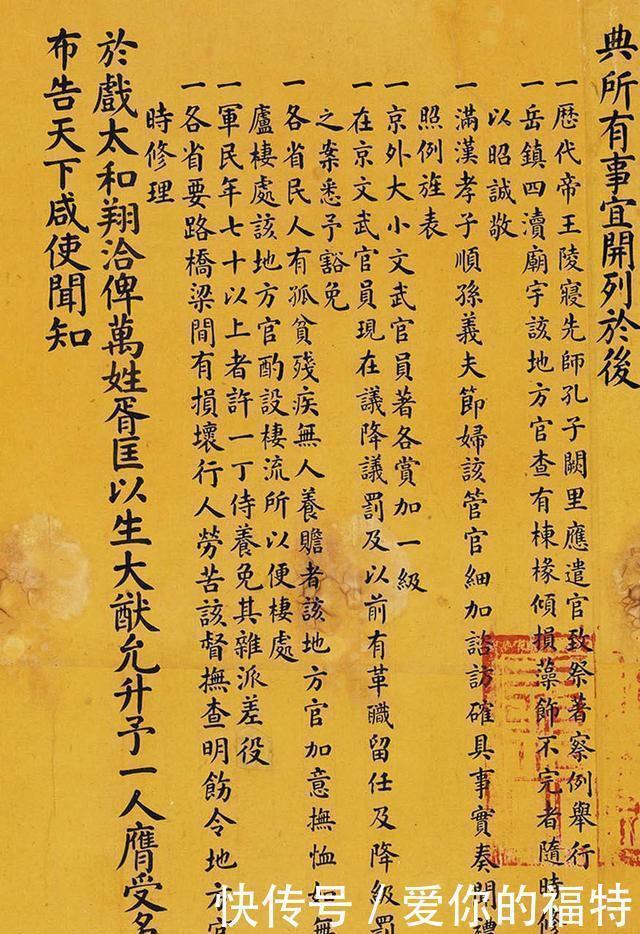 典所有事宜開列於後
一歷代帝王陵寢先師孔子闕里應遣官致祭著察例舉行
一岳鎮四瀆廟宇該地方官查有棟椽傾損藻飾不完者隨時修
以昭誠敬
一滿漢孝子順孫義夫節婦該管官細加諮訪確具事實奏聞禮
照例旌表
一京外大小文武官員著各賞加一級
一在京文武官員現在議降議罰及以前有革職留任及降級罰
之案悉予豁免
一各省民人有孤貧殘疾無人養贍者該地方官加意撫恤如無
廬棲處該地方官酌設棲流所以便棲處
一軍民年七十以上者許一丁侍養免其雜派差役
一各省要路橋梁間有損壞行人勞苦該督撫查明飭令地方官
時修理
於戲太和翔洽俾萬姓胥匡以生大猷允升予一人膺受名
布告天下咸使聞知
快传号/爱你的福特